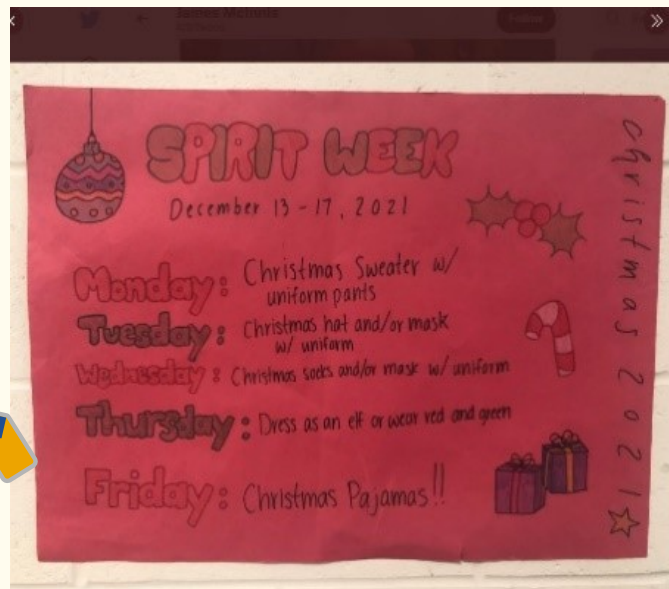 SPIRIT WEEK
December 13-17, 2021
Monday: Christmas Sweater w/
uniform pants
Tuesday: Christmas hat and/or mask
w/ uniform
Wednesday: Christmas socks and/or mask w/ uniform
Thursday: Dress as an elf or wear red and green
Friday: Christmas Pajamas!!
christmas 2021